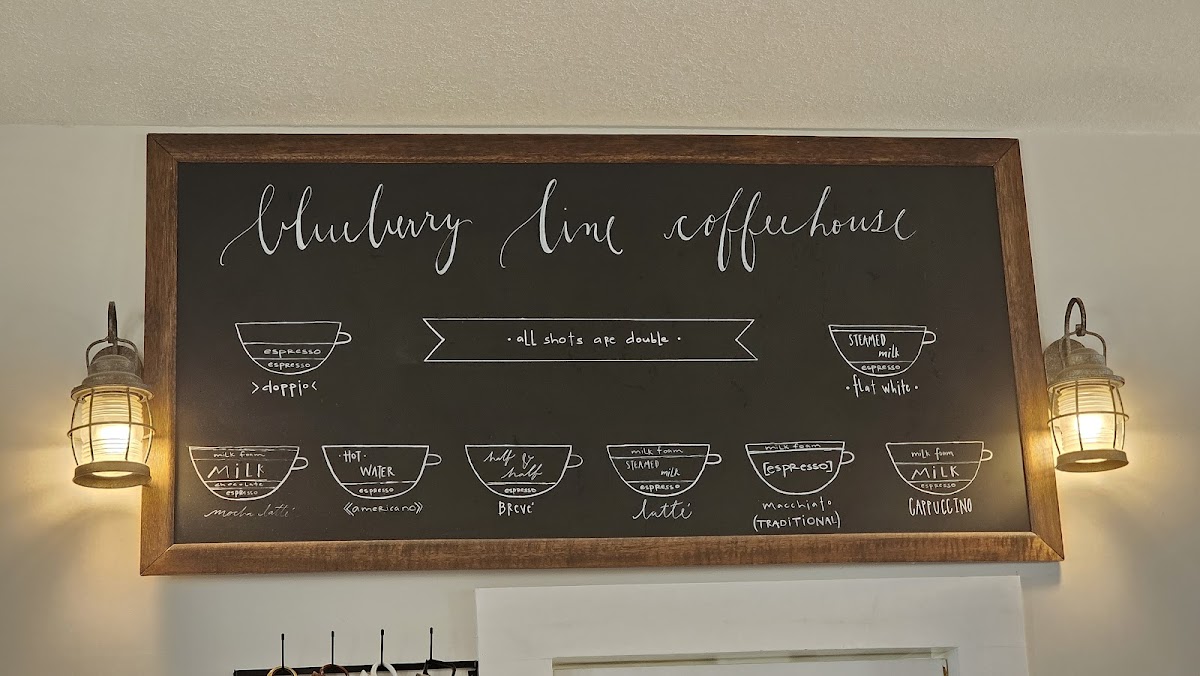 blueberry line coffeehouse
espresso
espresso
>doppio<
· all shots are double ·
STEAMED
milk
espresso
· flat white ·
milk foam
MILK
chocolate
espresso
mocha latté
· HOT ·
WATER
espresso
《americano》
half &
half
espresso
BREVÉ
milk foam
STEAMED
milk
espresso
latté
milk foam
[espresso]
macchiato
(TRADITIONAL)
milk foam
MILK
espresso
CAPPUCCINO